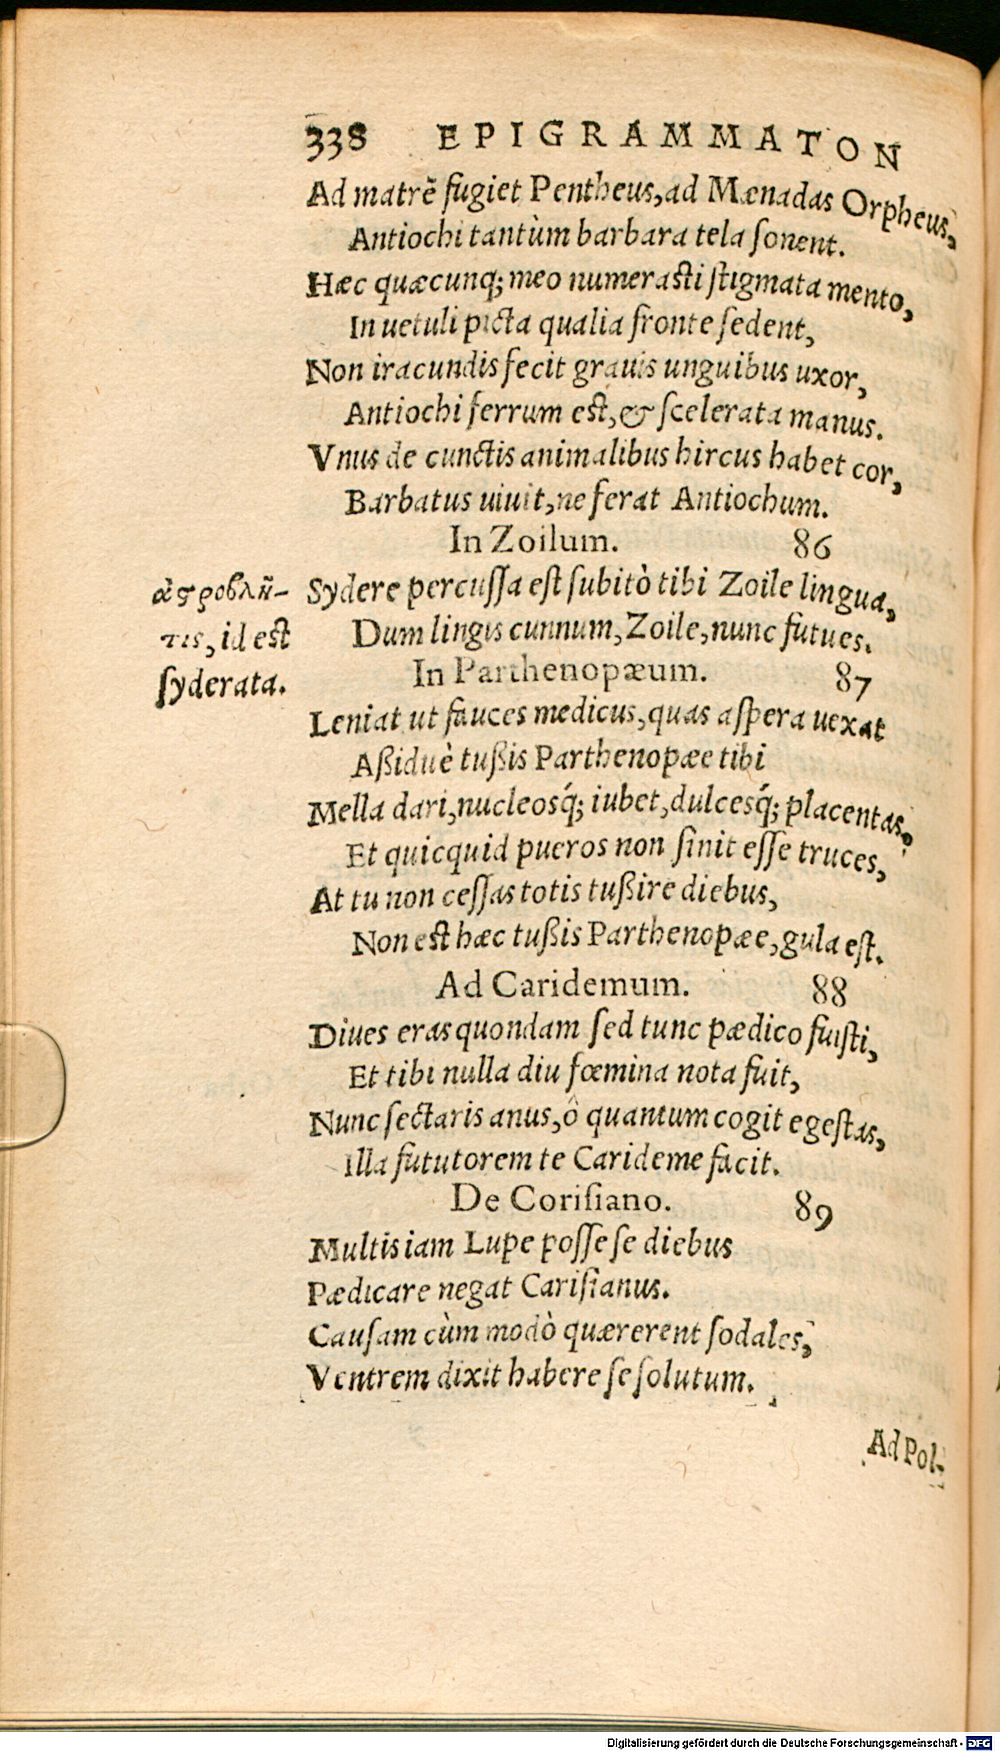 338 EPIGRAMMATON
Ad matrẽ fugiet Pentheus, ad Mænadas Orpheus,
Antiochi tantùm barbara tela ſonent.
Hæc quæcunq; meo numeraſti ſtigmata mento,
In uetuli picta qualia fronte ſedent,
Non iracundis fecit grauis unguibus uxor,
Antiochi ferrum eſt, & ſcelerata manus.
Vnus de cunctis animalibus hircus habet cor,
Barbatus uiuit, ne ferat Antiochum.
In Zoilum. 86
Sydere percuſſa eſt ſubitò tibi Zoile lingua,
Dum lingis cunnum, Zoile, nunc futues.
ἀςροβλῆ-
τις, id eſt
ſyderata.
In Parthenopæum. 87
Leniat ut fauces medicus, quas aſpera uexat
Aßiduè tußis Parthenopæe tibi
Mella dari, nucleosq́; iubet, dulcesq́; placentas,
Et quicquid pueros non ſinit eſſe truces,
At tu non ceſſas totis tußire diebus,
Non eſt hæc tußis Parthenopæe, gula eſt.
Ad Caridemum. 88
Diues eras quondam ſed tunc pædico fuiſti,
Et tibi nulla diu fœmina nota fuit,
Nunc ſectaris anus, ô quantum cogit egeſtas,
Illa fututorem te Carideme facit.
De Coriſiano. 89
Multis iam Lupe poſſe ſe diebus
Pædicare negat Cariſianus.
Cauſam cùm modò quærerent ſodales,
Ventrem dixit habere ſe ſolutum.
Ad Pol-
Digitalisierung gefördert durch die Deutsche Forschungsgemeinschaft - DFG